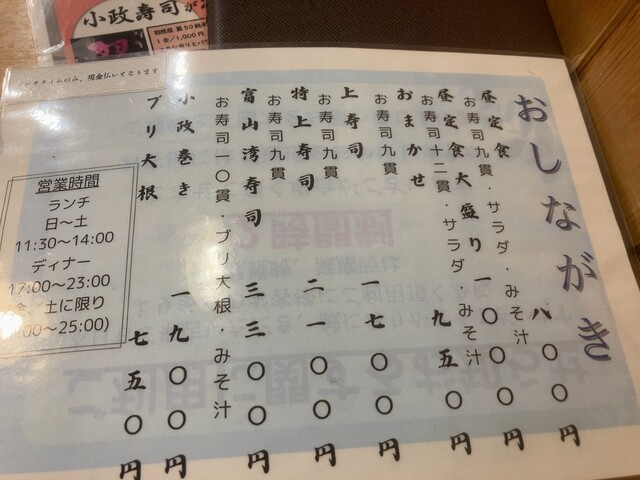 おしながき
昼定食 八〇〇円
お寿司九貫・サラダ・みそ汁
昼定食大盛り 一〇〇〇円
お寿司十二貫・サラダ・みそ汁
おまかせ 九五〇円
お寿司九貫
上寿司 一七〇〇円
お寿司九貫
特上寿司 二一〇〇円
お寿司九貫
富山湾寿司 三三〇〇円
お寿司一〇貫・ブリ大根・みそ汁
小政巻き 一九〇〇円
ブリ大根 七五〇円
営業時間
ランチ
日〜土
11:30〜14:00
ディナー
17:00〜23:00
、土に限り
00〜25:00)
タイムのみ、現金払いとなります
小政寿司が